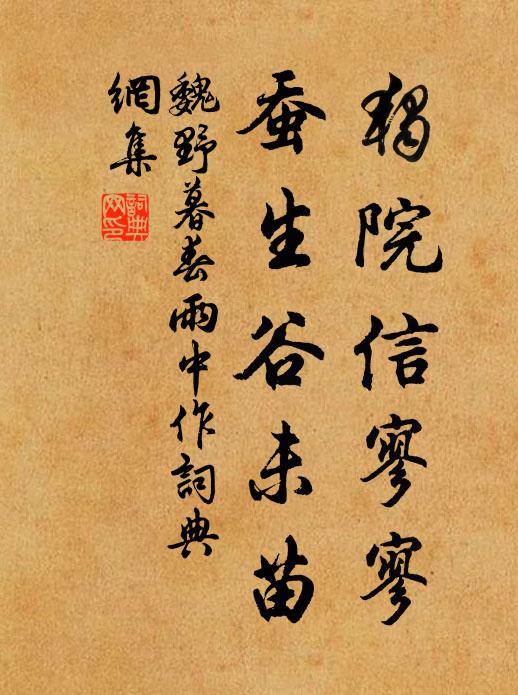 獨院信寥寥
蚕生谷未苗
魏野暮春雨中作詞典
網集
詞典
网印